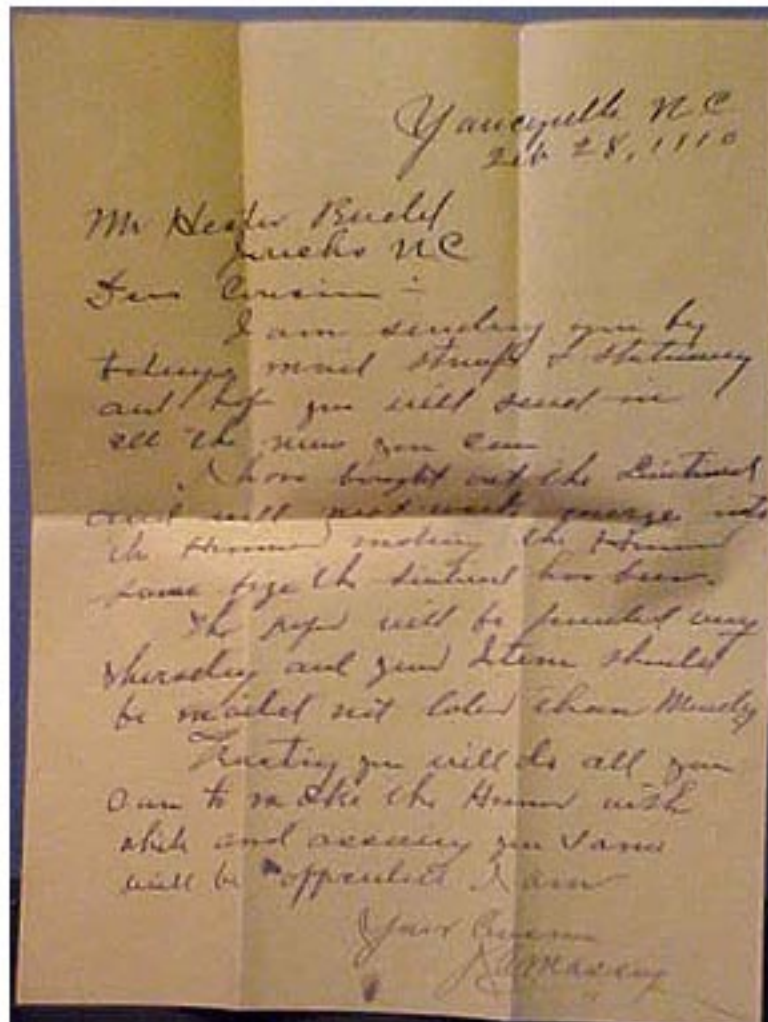 Yanceyville N C
Feb 28, 1910
Mr Hester Rudd
Jericho NC
Dear Cousin :-
I am sending you by
mail stamps & stationery
and hope you will send in
all the news you can
I have bought out the Sentinel
and will next week merge into
the making the
same size the Sentinel has been.
The paper will be printed every
Thursday and your Items should
be mailed not later than Monday
Trusting you will do all you
can to make the worth
while and assuring you same
will be appreciated I am
Your Cousin